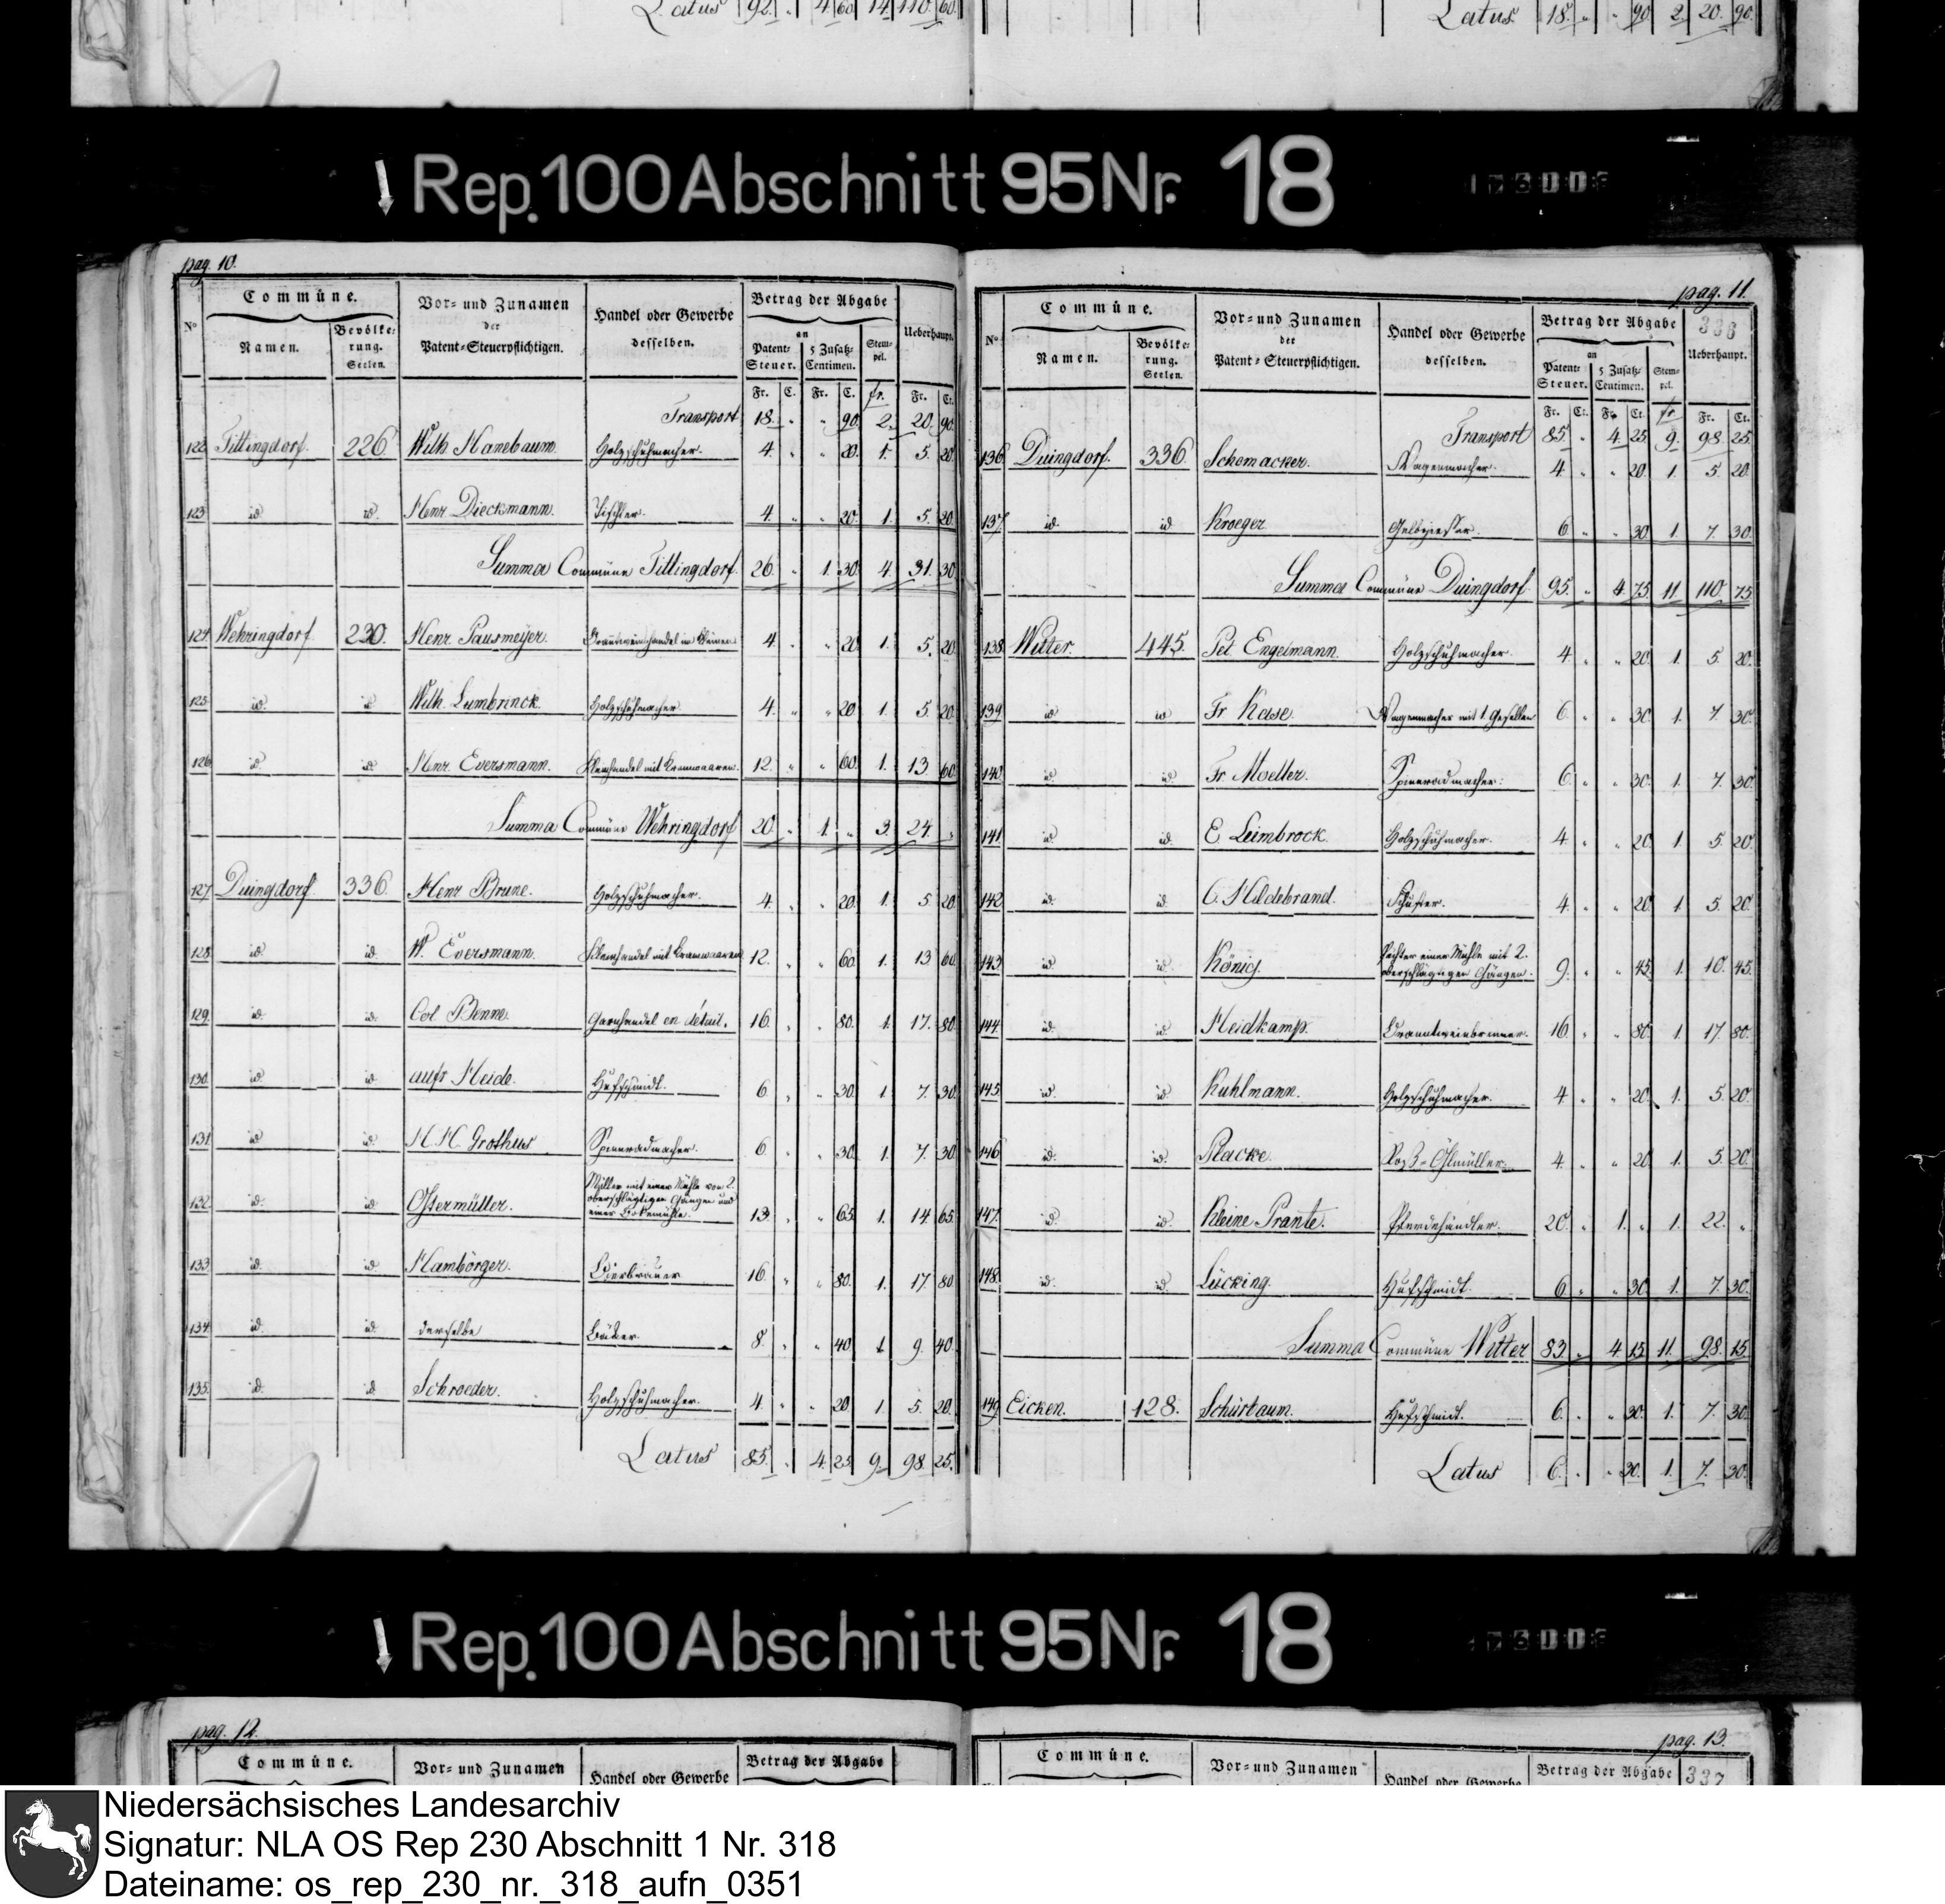 Latus 92. " 4 60 14 110 60.
Latus 18. " " 90 2. 20. 90.
Rep. 100 Abschnitt 95 Nr. 18
pag. 10.
Commüne.
Vor- und Zunamen
der
Patent-Steuerpflichtigen.
Handel oder Gewerbe
desselben.
Betrag der Abgabe
an
Ueberhaupt.
No
Namen.
Bevölke-
rung.
Seelen.
Patent-
Steuer.
5 Zusatz-
Centimen.
Stem-
pel.
Fr. C. Fr. C. fr. Fr. Ct.
Transport 18. " " 90. 2. 20. 90.
122 Tittingdorf. 226. Wilh Hanebaum. Holzschuhmacher. 4. " " 20. 1. 5. 20.
123 id. id. Henr Dieckmann. Tischler. 4. " " 20. 1. 5. 20.
Summa Commüne Tittingdorf. 26. " 1. 30. 4. 31. 30.
124. Wehringdorf. 230. Henr. Pausmeyer. Brantweinhandel im Kleinen. 4. " " 20. 1. 5. 20.
125 id. id Wilh. Lumbrinck. Holzschuhmacher. 4. " " 20 1. 5 20.
126 id. id. Henr. Eversmann. Kleinhandel mit Kramwaaren. 12. " " 60. 1. 13. 60.
Summa Commüne Wehringdorf 20. " 1. " 3. 24. "
127 Duingdorf 336. Henr Brune. Holzschuhmacher. 4. " " 20. 1. 5 20.
128 id. id. W. Eversmann. Kleinhandel mit Kramwaaren 12. " " 60. 1. 13 60.
129. id. id. Col Benne. Garnhandel en détail. 16. " " 80. 1. 17. 80.
130. id. id aufr Heide. Hufschmidt. 6. " " 30. 1 7. 30.
131 id id. H. H. Grothus Spinnradmacher. 6. " " 30. 1. 7. 30.
132 id. id Ostermüller. Müller mit einer Mühle von 2
oberschlägtigen Gängen und
einer Bokemühle. 13. " " 65. 1. 14 65.
133 id. id Hambörger. Bierbrauer 16. " " 80. 1. 17 80.
134 id. id. derselbe Bäcker 8. " " 40 1 9. 40.
135. id. id Schroeder. Holzschuhmacher. 4. " " 20 1. 5. 20.
Latus 85. " 4. 25. 9. 98 25.
pag. 11.
336
Commüne.
Vor- und Zunamen
der
Patent-Steuerpflichtigen.
Handel oder Gewerbe
desselben.
Betrag der Abgabe
an
Ueberhaupt.
No
Namen.
Bevölke-
rung.
Seelen.
Patent-
Steuer.
5 Zusatz-
Centimen.
Stem-
pel.
Fr. Ct. Fr. Ct. fr Fr. Ct.
Transport 85. " 4. 25. 9. 98 25.
136. Duingdorf. 336. Schomacker. Wagenmacher. 4 " " 20. 1 5 20.
137. id. id Kroeger Gelbgiesser. 6 " " 30. 1. 7. 30.
Summa Commüne Duingdorf 95. " 4. 75. 11. 110. 75
138. Witter. 445. Pet Engelmann. Holzschuhmacher. 4 " " 20. 1. 5. 20.
139 id id Fr Kase. Wagenmacher mit 1. Gesellen 6. " " 30. 1. 7. 30.
140. id. id. Fr Moeller. Spinnradmacher: 6. " " 30. 1 7. 30.
141. id. id. E Leimbrock. Holzschuhmacher. 4 " " 20. 1. 5. 20.
142 id. id. C. Hildebrand. Schuster. 4. " " 20. 1 5. 20.
143. id. id. König. Pächter einer Mühle mit 2.
oberschlägtigen Gängen. 9. " " 45. 1. 10. 45.
144. id. id Heidkamp. Branntweinbrenner. 16 " " 80. 1. 17. 80.
145. id. id. Kuhlmann. Holzschuhmacher. 4 " " 20. 1. 5. 20.
146 id. id. Placke. Roß-Öhlmüller. 4. " " 20. 1. 5. 20.
147. id. id. Kleine Prante. Pferdehändler. 20. " 1. " 1. 22. "
148. id. id. Lücking. Hufschmidt. 6. " " 30. 1. 7. 30.
Summa Commüne Witter 83. " 4 15. 11. 98. 15.
149. Eicken. 128. Schürbaum. Hufschmidt. 6. " " 30. 1. 7. 30.
Latus 6. " " 30. 1. 7. 30.
Rep. 100 Abschnitt 95 Nr. 18
pag. 12.
Commüne.
Vor- und Zunamen
Handel oder Gewerbe
Betrag der Abgabe
pag. 13.
Commüne.
Vor- und Zunamen
Handel oder Gewerbe
Betrag der Abgabe
337
Niedersächsisches Landesarchiv
Signatur: NLA OS Rep 230 Abschnitt 1 Nr. 318
Dateiname: os_rep_230_nr._318_aufn_0351